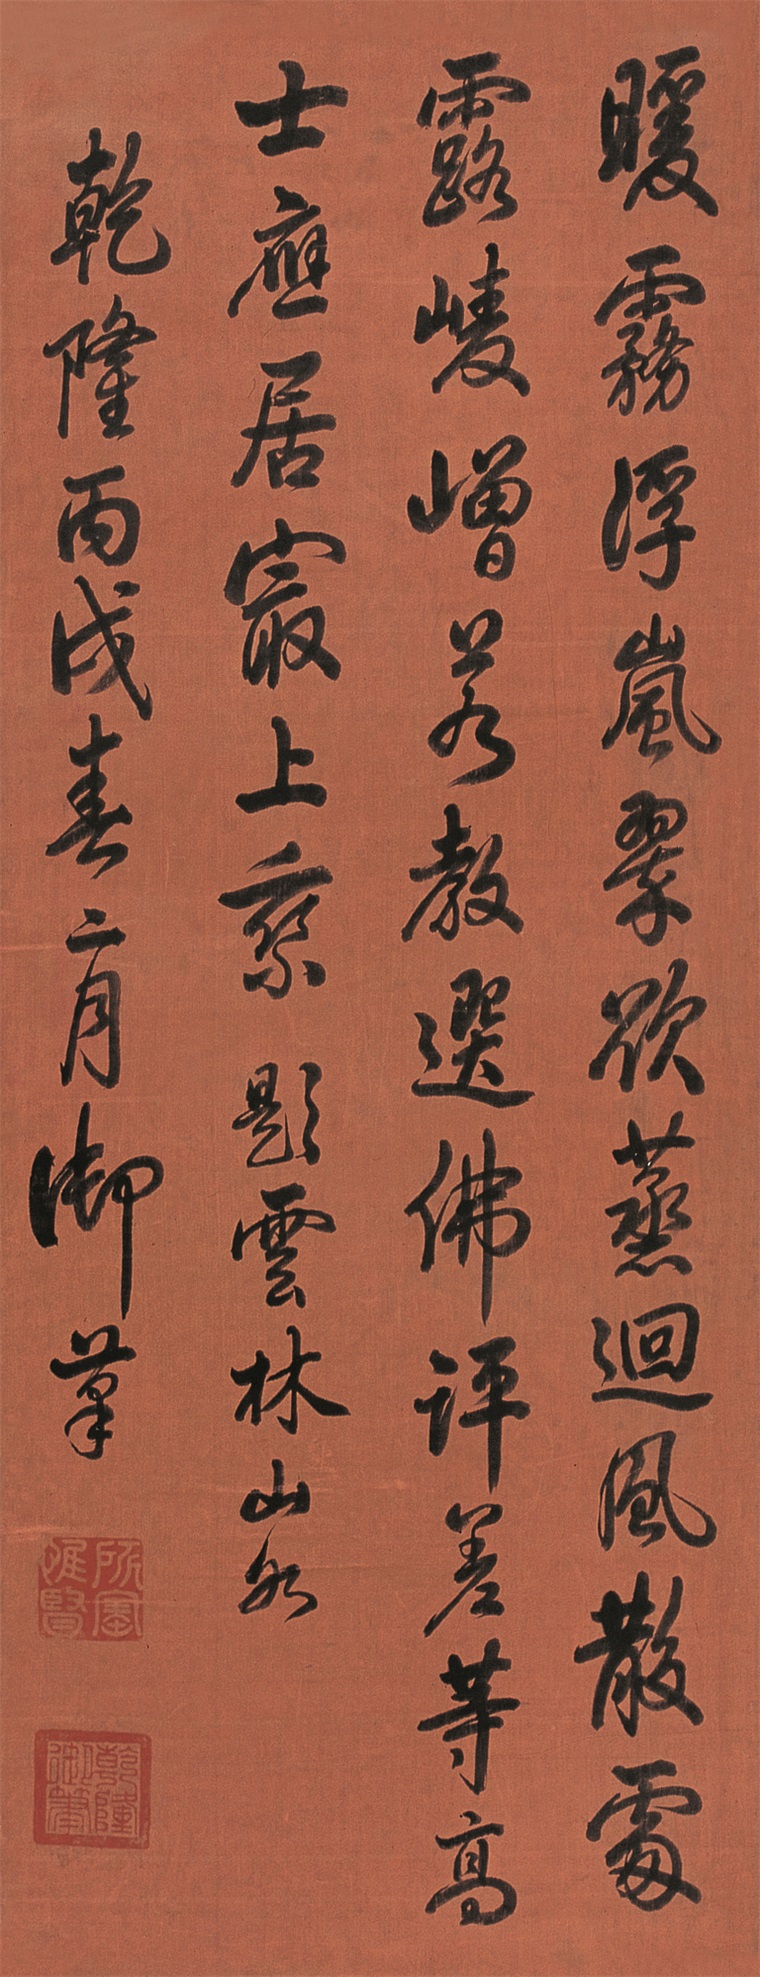 暖霧浮嵐翠欲蒸迴風散處
露崚嶒若教選佛評差等高
士應居㝡上乘 題雲林山水
乾隆丙戌春二月御筆
所寶惟賢
乾隆御筆